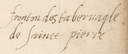 frontin des tabernagle
de sainct pierre